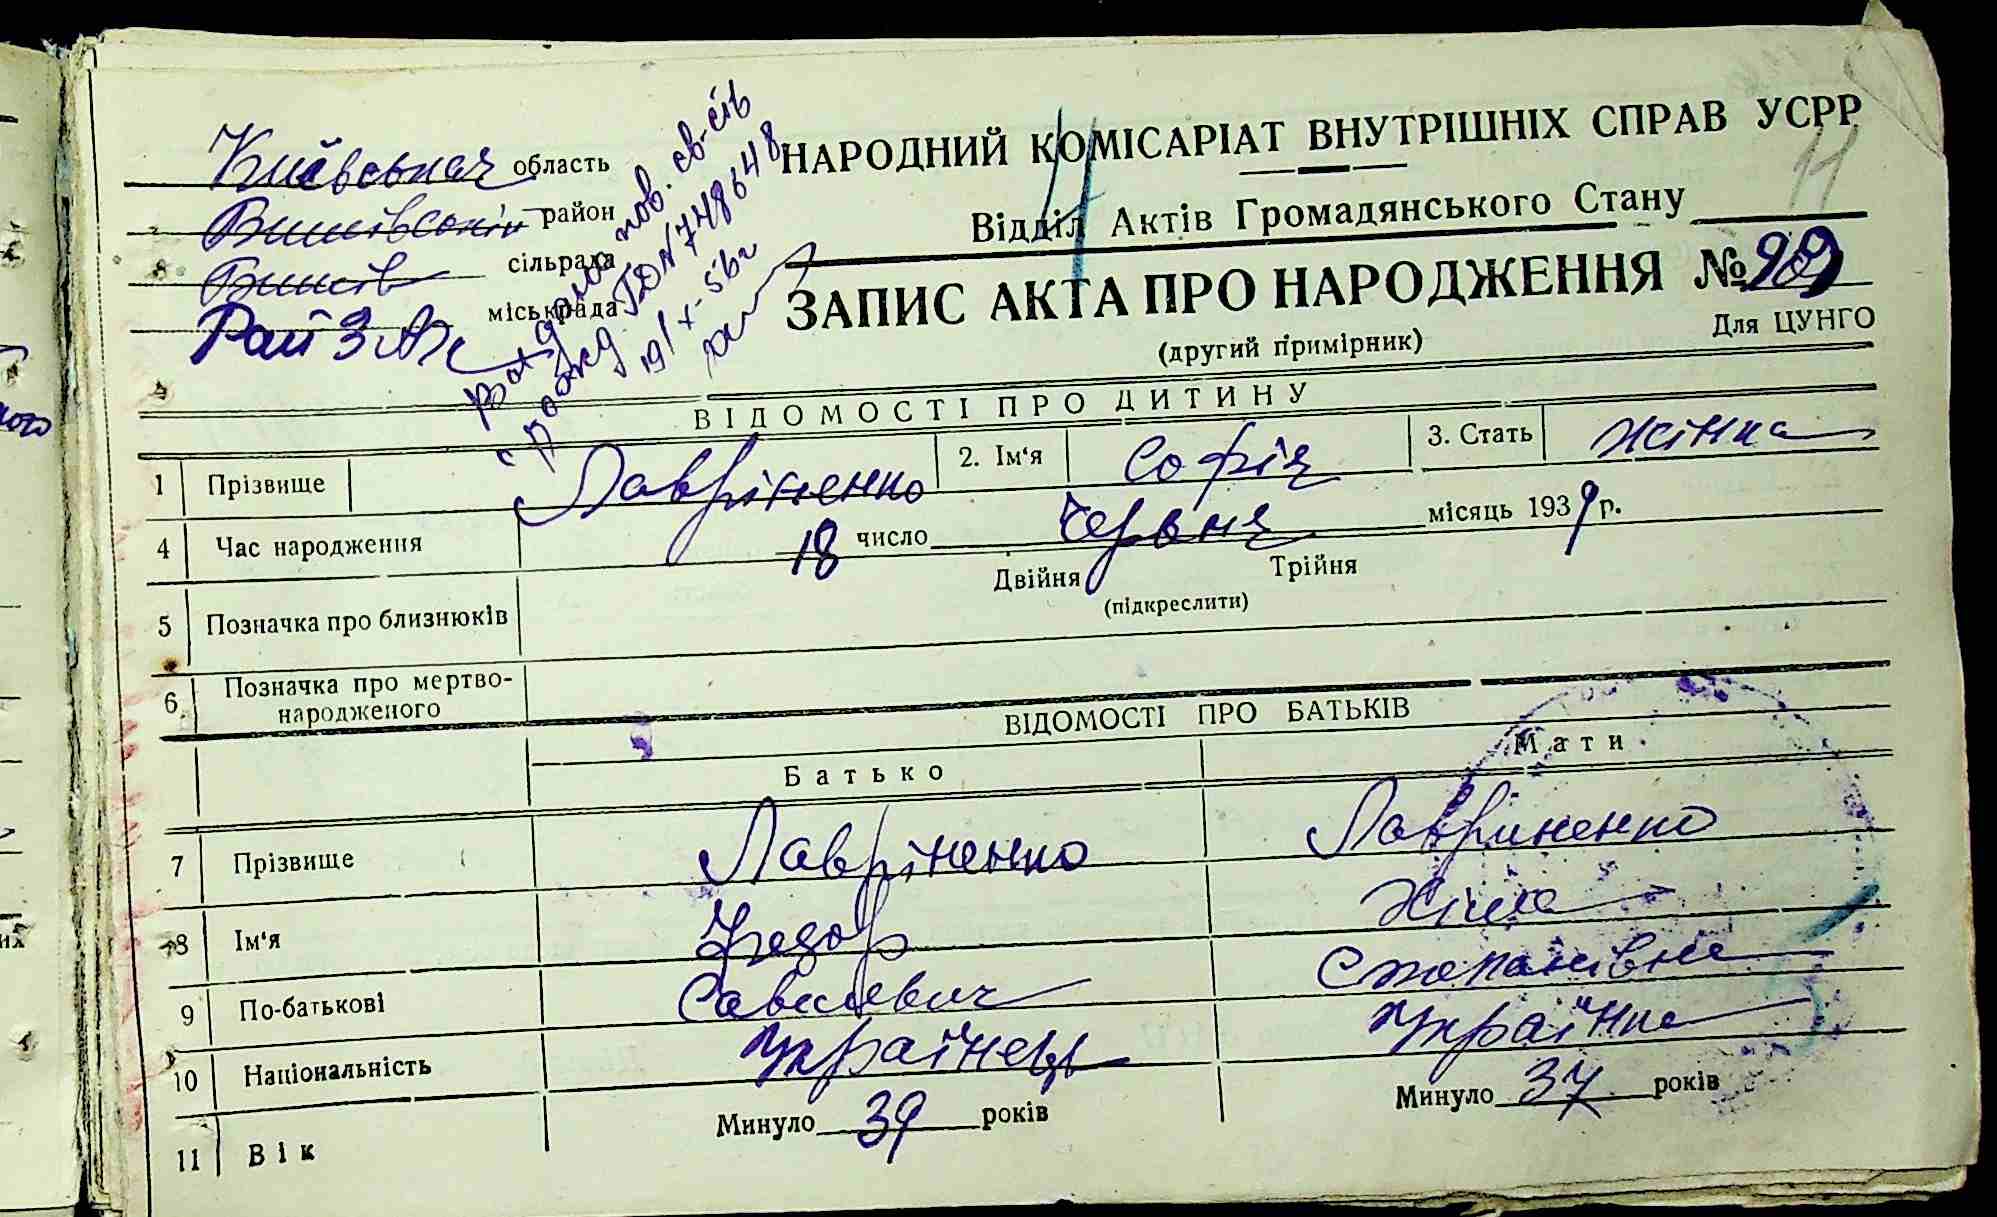 НАРОДНИЙ КОМІСАРІАТ ВНУТРІШНІХ СПРАВ УСРР
11
Відділ Актів Громадянського Стану
ЗАПИС АКТА ПРО НАРОДЖЕННЯ №
(другий примірник)
Для ЦУНГО
Київська область
район
сільрада
міськрада
пов. св-сів
№ 748648
19/X-56г
ВІДОМОСТІ ПРО ДИТИНУ
1 Прізвище Лавріненко 2. Ім'я Софія 3. Стать жінка
4 Час народження 18 число червня місяць 1939 р.
5 Позначка про близнюків Двійня Трійня
(підкреслити)
6 Позначка про мертво-
народженого
ВІДОМОСТІ ПРО БАТЬКІВ
Батько Мати
7 Прізвище Лавріненко Лавриненко
8 Ім'я Федор
9 По-батькові Савелевич Степанівна
10 Національність Українець Українка
11 Вік Минуло 39 років Минуло 37 років